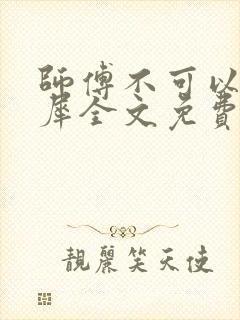 師傅不可以
犀全文免費
靚麗笑天使